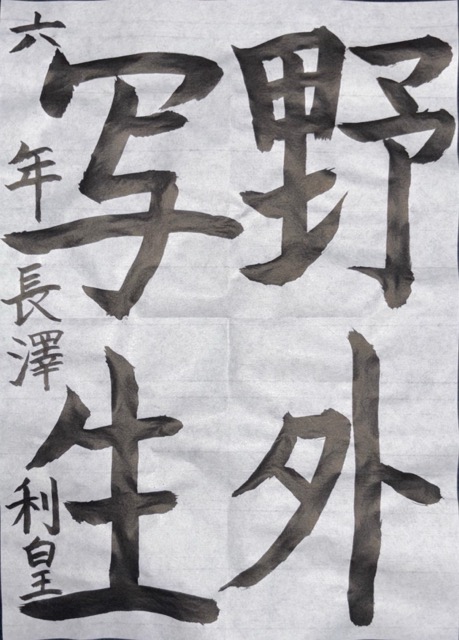 野外
写生
六年長澤利皇